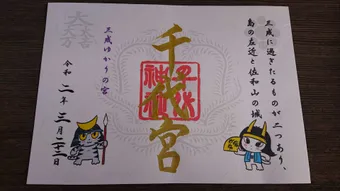 三成に過ぎたるものが二つあり、
島の左近と佐和山の城
千代宮
千代
神社
三成ゆかりの宮
令和二年三月二十二日